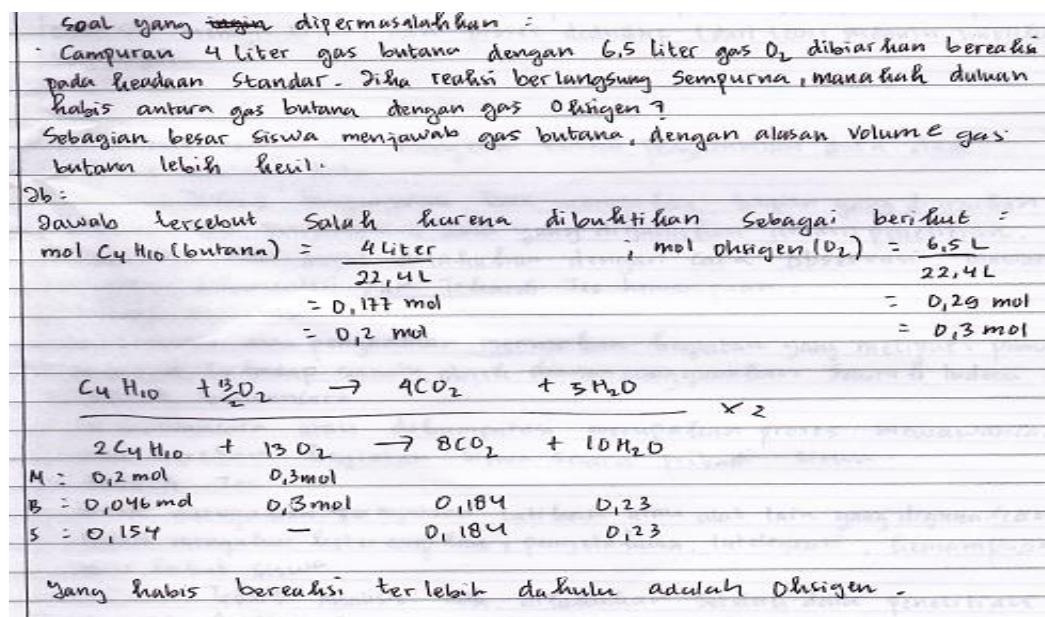 Soal yang ingin dipermasalahkan :
Campuran 4 liter gas butana dengan 6,5 liter gas O₂ dibiarkan bereaksi
pada keadaan Standar. Jika reaksi berlangsung Sempurna, manakah duluan
habis antara gas butana dengan gas Oksigen ?
Sebagian besar siswa menjawab gas butana, dengan alasan volume gas
butana lebih kecil.
Jb :
Jawab tersebut Salah karena dibuktikan Sebagai berikut :
mol C₄H₁₀ (butana) = 4 Liter / 22,4 L ; mol oksigen (O₂) = 6,5 L / 22,4 L
= 0,177 mol = 0,29 mol
= 0,2 mol = 0,3 mol
C₄H₁₀ + 13/2 O₂ → 4CO₂ + 5H₂O × 2
2C₄H₁₀ + 13O₂ → 8CO₂ + 10H₂O
M : 0,2 mol 0,3mol
B = 0,046 mol 0,3mol 0,184 0,23
S = 0,154 — 0,184 0,23
Yang habis bereaksi terlebih dahulu adalah Oksigen.